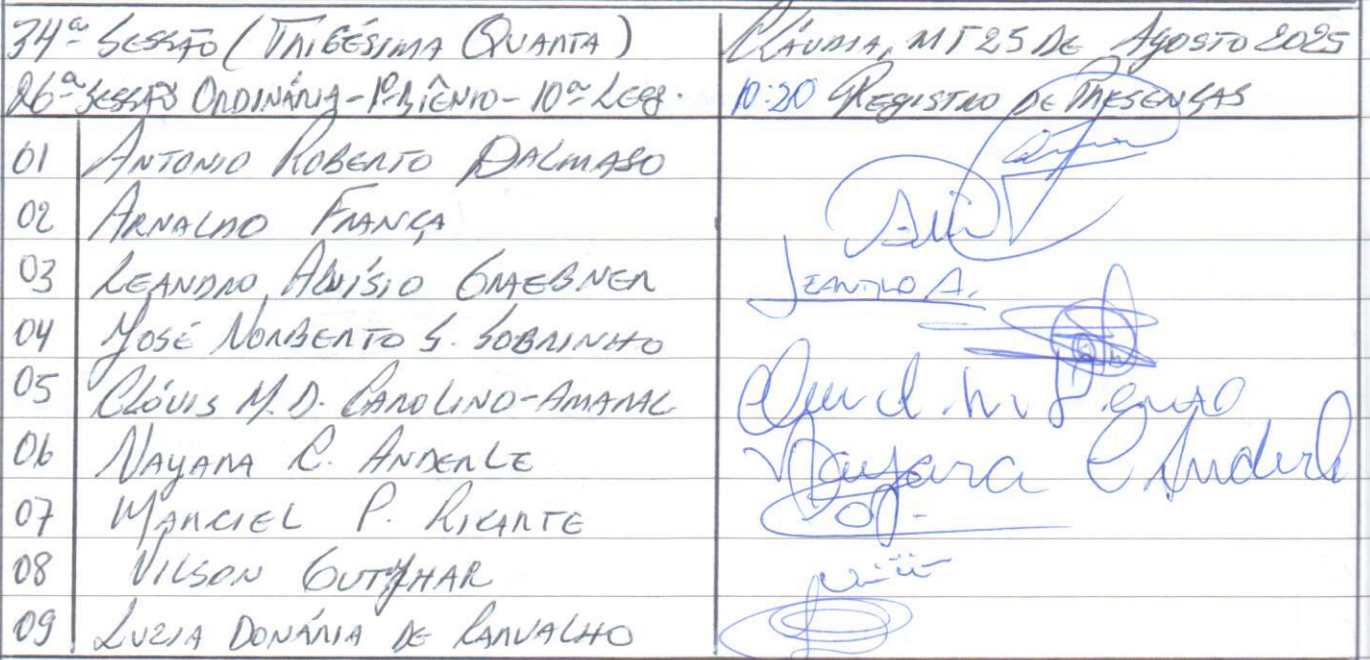 34ª SESSÃO (TRIGÉSIMA QUARTA)
CLÁUDIA, MT 25 DE AGOSTO 2025
26ª SESSÃO ORDINÁRIA - 1º BIÊNIO - 10ª LEG.
10:20 REGISTRO DE PRESENÇAS
01 ANTONIO ROBERTO DALMASO
02 ARNALDO FRANÇA
03 LEANDRO ALUÍSIO GRAEBNER
LEANDRO A.
04 JOSÉ NORBERTO S. SOBRINHO
05 CLÓVIS M. D. CAROLINO-AMARAL
06 NAYARA C. ANDERLE
Nayara C Anderle
07 MARCIEL P. 
08 VILSON 
09 LUZIA DONÁRIA DE CARVALHO